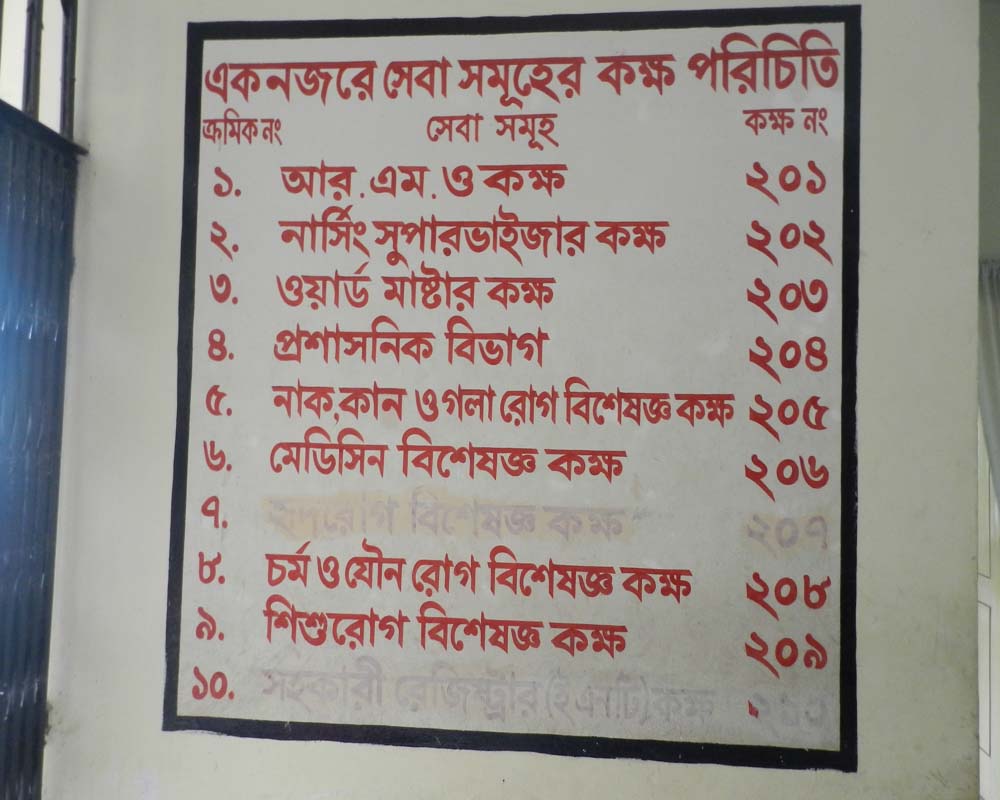 একনজরে সেবা সমূহের কক্ষ পরিচিতি
ক্রমিক নং সেবা সমূহ কক্ষ নং
১. আর.এম.ও কক্ষ ২০১
২. নার্সিং সুপারভাইজার কক্ষ ২০২
৩. ওয়ার্ড মাষ্টার কক্ষ ২০৩
৪. প্রশাসনিক বিভাগ ২০৪
৫. নাক,কান ও গলা রোগ বিশেষজ্ঞ কক্ষ ২০৫
৬. মেডিসিন বিশেষজ্ঞ কক্ষ ২০৬
৭. হৃদরোগ বিশেষজ্ঞ কক্ষ ২০৭
৮. চর্ম ও যৌন রোগ বিশেষজ্ঞ কক্ষ ২০৮
৯. শিশুরোগ বিশেষজ্ঞ কক্ষ ২০৯
১০. সহকারী রেজিষ্ট্রার (ই এনটি) কক্ষ